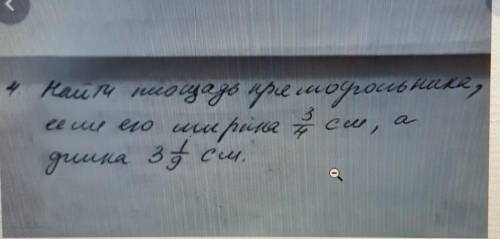 4. Найти площадь прямоугольника,
если его ширина 3/4 см, а
длина 3 1/9 см.